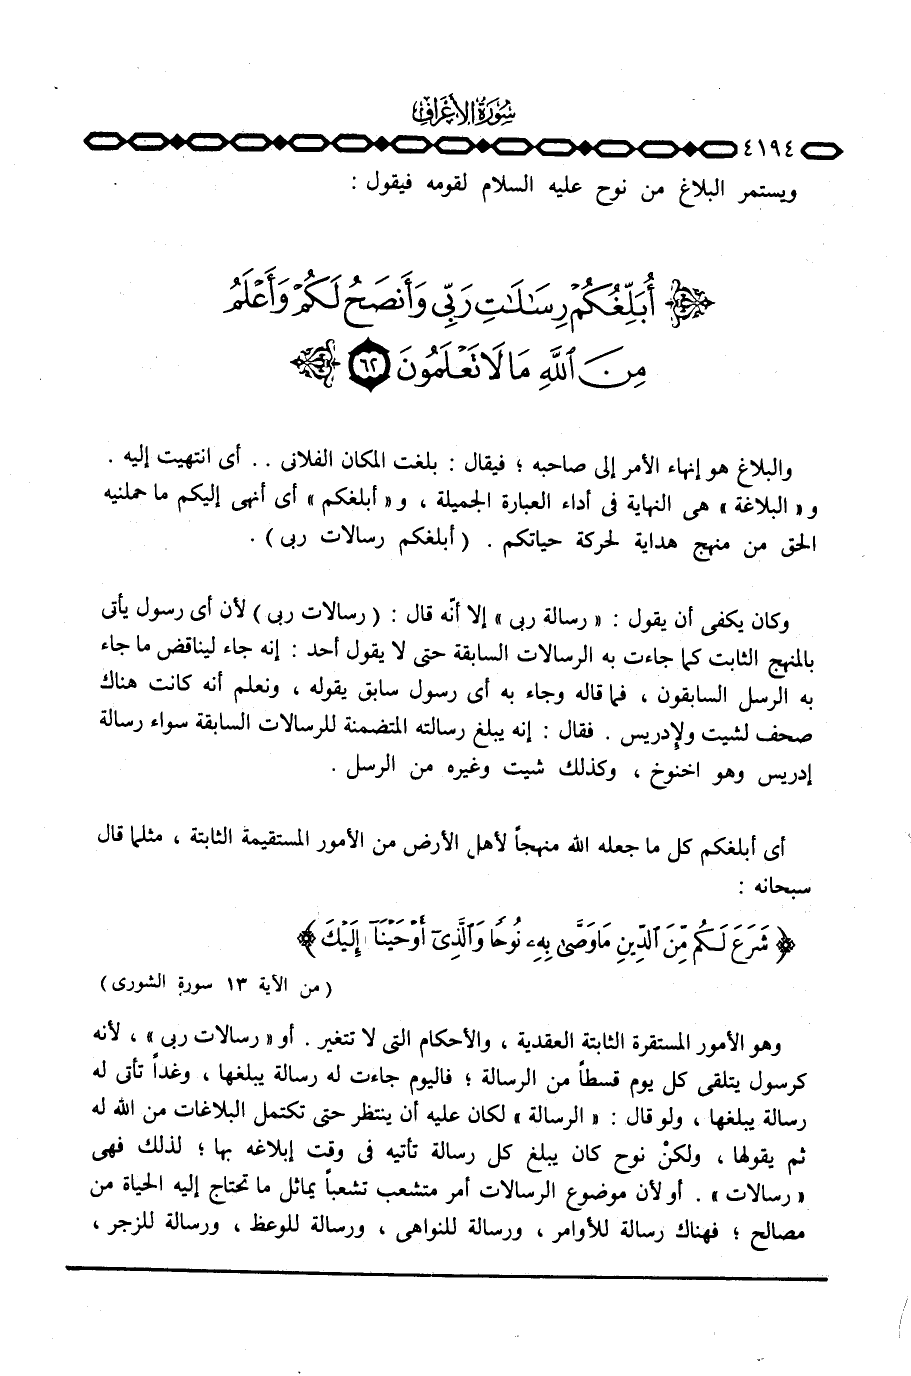 سُورَةُ الأَعْرَافِ
٤١٩٤
ويستمر البلاغ من نوح عليه السلام لقومه فيقول :
أُبَلِّغُكُمْ رِسَالَاتِ رَبِّى وَأَنصَحُ لَكُمْ وَأَعْلَمُ
مِنَ ٱللَّهِ مَا لَا تَعْلَمُونَ ٦٢
والبلاغ هو إنهاء الأمر إلى صاحبه ؛ فيقال : بلغت المكان الفلانى . . أى انتهيت إليه .
و « البلاغة » هى النهاية فى أداء العبارة الجميلة ، و « أبلغكم » أى أنهى إليكم ما حملنيه
الحق من منهج هداية لحركة حياتكم . ( أبلغكم رسالات ربى ) .
وكان يكفى أن يقول : « رسالة ربى » إلا أنّه قال : ( رسالات ربى ) لأن أى رسول يأتى
بالمنهج الثابت كما جاءت به الرسالات السابقة حتى لا يقول أحد : إنه جاء ليناقض ما جاء
به الرسل السابقون ، فما قاله وجاء به أى رسول سابق يقوله ، ونعلم أنه كانت هناك
صحف لشيت ولإدريس . فقال : إنه يبلغ رسالته المتضمنة للرسالات السابقة سواء رسالة
إدريس وهو اخنوخ ، وكذلك شيت وغيره من الرسل .
أى أبلغكم كل ما جعله الله منهجاً لأهل الأرض من الأمور المستقيمة الثابتة ، مثلما قال
سبحانه :
﴿ شَرَعَ لَكُم مِّنَ ٱلدِّينِ مَا وَصَّىٰ بِهِۦ نُوحًا وَٱلَّذِىٓ أَوْحَيْنَآ إِلَيْكَ ﴾
( من الآية ١٣ سورة الشورى )
وهو الأمور المستقرة الثابتة العقدية ، والأحكام التى لا تتغير . أو « رسالات ربى » ، لأنه
كرسول يتلقى كل يوم قسطاً من الرسالة ؛ فاليوم جاءت له رسالة يبلغها ، وغداً تأتى له
رسالة يبلغها ، ولو قال : « الرسالة » لكان عليه أن ينتظر حتى تكتمل البلاغات من الله له
ثم يقولها ، ولكنْ نوح كان يبلغ كل رسالة تأتيه فى وقت إبلاغه بها ؛ لذلك فهى
« رسالات » . أو لأن موضوع الرسالات أمر متشعب تشعباً يماثل ما تحتاج إليه الحياة من
مصالح ؛ فهناك رسالة للأوامر ، ورسالة للنواهى ، ورسالة للوعظ ، ورسالة للزجر ،